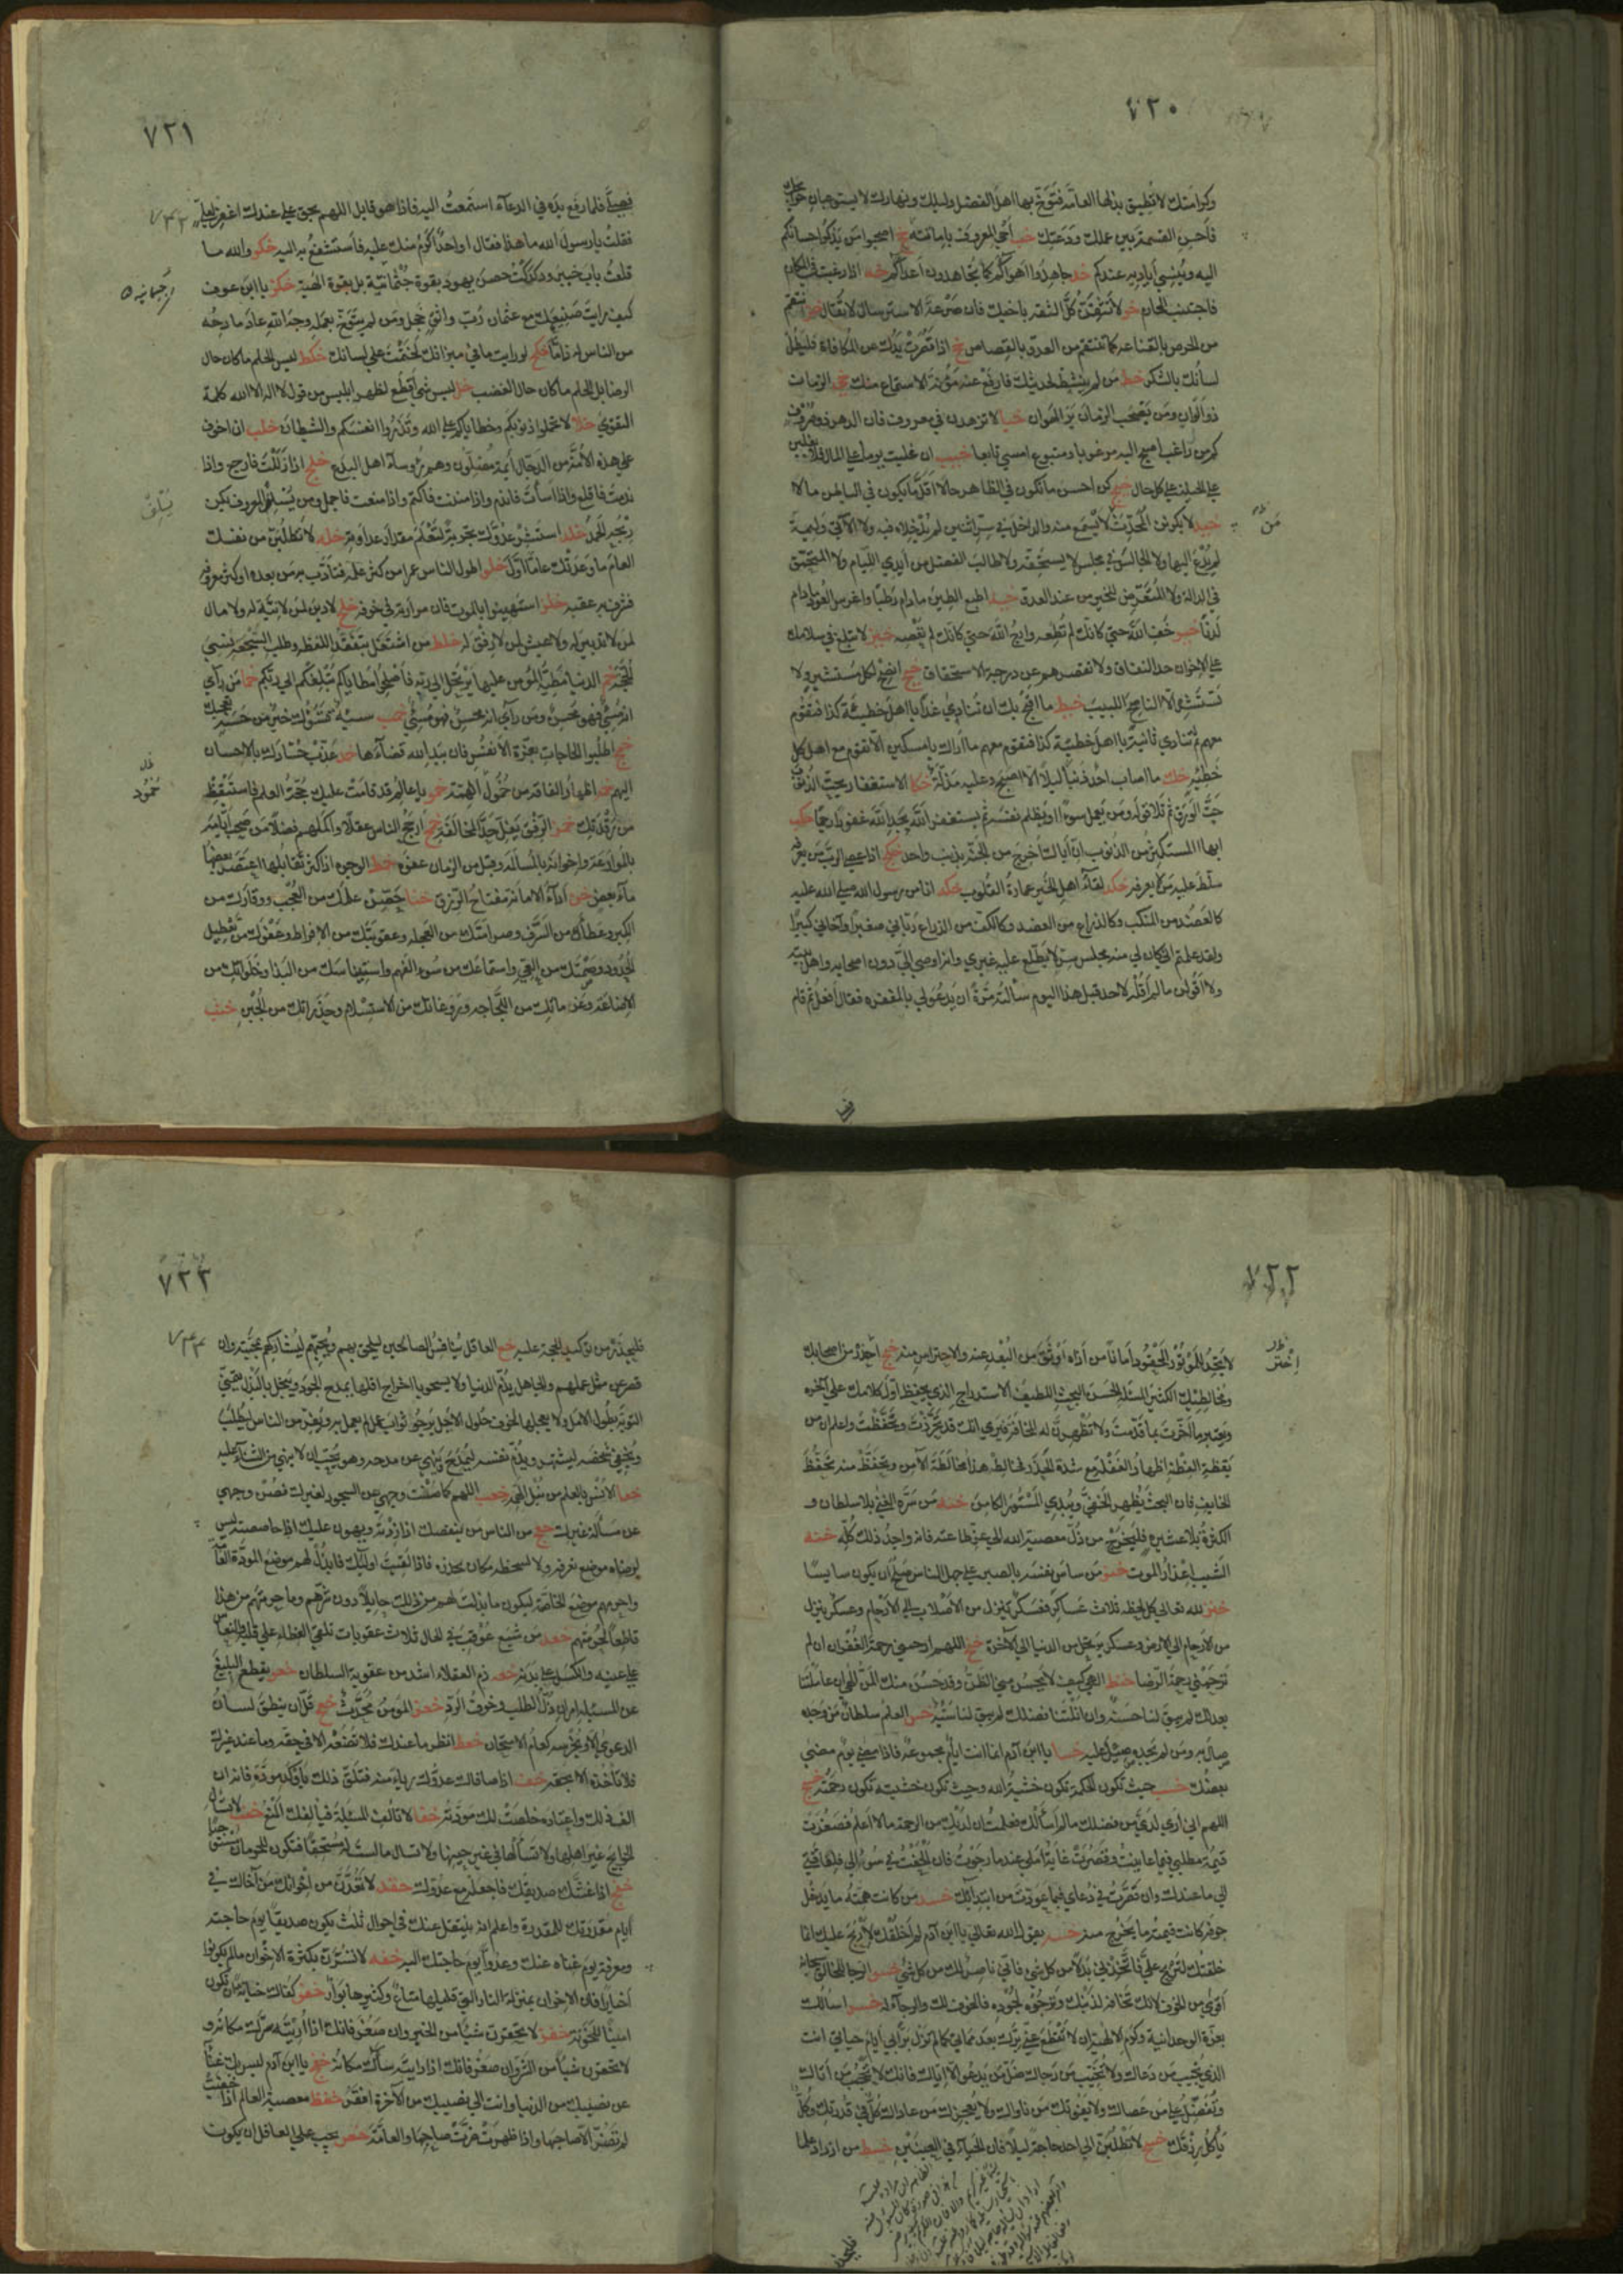 ٧٢٠
وكرامتك لا تُطيق بذلها العامّة فتَوَخَّ بها اهل الفضل وليلك ونهارك لا يستوعبان حوائجك
فأحسن القسمة بين عملك ودَعَتك خب أحي المعروف بإماتته خج اصحبوا من يذكر احسانكم
اليه وينسى أياديه عندكم خد جاهدوا اهواءكم كما تجاهدون أعداءكم خه اذا رغبت في المكارم
فاجتنب المحارم خو لا تثقنّ كلّ الثقة بأخيك فان صَرعة الاسترسال لا تُقال خز انتقم
من الحرص بالقناعة كما تنتقم من العدوّ بالقصاص خح اذا قصرت يدك عن المكافاة فليطل
لسانك بالشكر خط من لم ينشط لحديثك فارفع عنه مؤنة الاستماع منك خي الزمان
ذو ألوان ومن يصحب الزمان يرَ الهوان خيا لا تزهدن في معروف فان الدهر ذو صروف
كم من راغب اصبح اليه مرغوبا ومتبوع امسى تابعا خيب ان غلبت يوما على المال فلا تغلبن
على الحيلة على كل حال خيج كن احسن ما تكون في الظاهر حالا اقلّ ما تكون في الباطن مالا
خيد لا يكونن المحدّث لا يسمع منه والداخل في سرّ اثنين لم يدخلاه فيه ولا الآتي وليمة
لم يدع اليها ولا الجالس في مجلس لا يستحقه ولا طالب الفضل من أيدي اللئام ولا المتحمق
في الدالة ولا المتعرّض للخير من عند العدوّ خيه اطبع الطين ما دام رطبا واغرس العود ما دام
لدنا خيو خف الله حتى كأنك لم تطعه وارج الله حتى كأنك لم تعصه خيز لا تبلغ في سلامك
على الاخوان حد النفاق ولا تقصر بهم عن درجة الاستحقاق خيح انصح لكل مستشير ولا
تستشر الا الناصح اللبيب خيط ما اقبح بك ان تنادى غدا يا اهل خطيئة كذا فتقوم
معهم ثم تنادى ثانية يا اهل خطيئة كذا فتقوم معهم ما اراك يا مسكين الا تقوم مع اهل كل
خطيئة خك ما اصاب احد ذنبا ليلا الا اصبح وعليه مذلّته خكا الاستغفار يحتّ الذنوب
حتّ الورق ثم تلا قوله ومن يعمل سوءا او يظلم نفسه ثم يستغفر الله يجد الله غفورا رحيما خكب
ايها المستكثر من الذنوب ان أباك اخرج من الجنة بذنب واحد خكج اذا عصى الرب من يعرفه
سلّط عليه من لا يعرفه خكد لقاء اهل الخير عمارة القلوب خكه انا من رسول الله صلى الله عليه
كالعضد من المنكب وكالذراع من العضد وكالكف من الذراع ربّاني صغيرا وآخاني كبيرا
ولقد علمتم اني كان لي منه مجلس سرّ لا يطلع عليه غيري وانه اوصى اليّ دون اصحابه واهل بيته
ولأقولن ما لم أقله لاحد قبل هذا اليوم سألته مرّة ان يدعو لي بالمغفرة فقال أفعل ثم قام
٧٢١
فصلّى فلما رفع يده في الدعاء استمعت اليه فاذا هو قايل اللهم بحق علي عندك اغفر لعلي
فقلت يا رسول الله ما هذا فقال او احد أكرم منك عليه فأستشفع به اليه خكو والله ما
قلعت باب خيبر ودكدكت حصن يهود بقوة جثمانية بل بقوة الهية خكز يا ابن عوف
كيف رايت صنيعك مع عثمان ربّ واثق خجل ومن لم يتوخ بعمله وجه الله عاد مادحه
من الناس له ذامّا خكح لو رايت ما في ميزانك لختمت على لسانك خكط ليس الحلم ما كان حال
الرضا بل الحلم ما كان حال الغضب خل ليس شيء أقطع لظهر ابليس من قول لا اله الا الله كلمة
التقوى خلا لا تحملوا ذنوبكم وخطاياكم على الله وتذروا انفسكم والشيطان خلب ان اخوف
على هذه الأمّة من الدجال أيمة مضلون وهم رؤساء اهل البدع خلج اذا زللت فارجع واذا
ندمت فاقلع واذا اسأت فاندم واذا مننت فاكتم واذا منعت فاجمل ومن يسلف المعروف يكن
ربحه الحمد خلد استشر عدوّك تجربة لتعلم مقدار عداوته خله لا تطلبنّ من نفسك
العام ما وعدتك عاما اوّل خلو اطول الناس عمرا من كثر علمه فتأدّب به من بعده او كثر معروفه
فشرف به عقبه خلز استهينوا بالموت فان مرارته في خوفه خلح لا دين لمن لا نيّة له ولا مال
لمن لا تدبير له ولا عيش لمن لا رفق له خلط من اشتغل بتفقد اللفظة وطلب السجعة نسي
الحجة خم الدنيا مطيّة المؤمن عليها يرتحل الى ربه فأصلحوا مطاياكم تبلغكم الى ربكم خما من رأى
انه مسيء فهو محسن ومن رأى انه محسن فهو مسيء خمب سيئة تسوءك خير من حسنة تعجبك
خمج اطلبوا الحاجات بعزة الانفس فان بيد الله قضاءها خمد عذّب حسّادك بالاحسان
اليهم خمه اظهار الفاقة من خمول الهمّة خمو يا عالم قد قامت عليك حجّة العلم فاستيقظ
من رقدتك خمز الرفق يفلّ حدّ المخالفة خمح ارجح الناس عقلا وأكملهم فضلا من صحب ايّامه
بالموادعة واخوانه بالمسالمة وقبل من الزمان عفوه خمط الوجوه اذا كثر تقابلها اعتصر بعضها
ماء بعض خن أداء الامانة مفتاح الرزق خنا حصّن علمك من العجب ووقارك من
الكبر وعطاءك من السرف وصرامتك من العجلة وعقوبتك من الافراط وعفوك من تعطيل
الحدود وصمتك من العيّ واستماعك من سوء الفهم واستيناسك من البذاء وخلواتك من
الاضاعة وعزماتك من اللجاجة وروغانك من الاستسلام وحذراتك من الجبن خنب
٧٢٢
لا تجد للموتور المحقود أمانا من أذاه أوثق من البعد عنه والاحتراس منه خنج احذر من اصحابك
ومخالطيك الكثير المسئلة الخشن البحث اللطيف الاستدراج الذي يحفظ اوّل كلامك على آخره
ويعتبر ما اخّرت بما قدّمت ولا تظهرنّ له المخافة فيرى انك قد تحرزت وتحفظت واعلم ان من
يقظة الفطنة اظهار الغفلة مع شدة الحذر فخالط هذا مخالطة الآمن وتحفظ منه تحفظ
الخايف فان البحث يظهر الخفيّ ويبدي المستور الكامن خند من سرّه الغنى بلا سلطان و
الكثرة بلا عشيرة فليخرج من ذلّ معصية الله الى عزّ طاعته فانه واجد ذلك كلّه خنه
الشيب اعذار الموت خنو من ساس نفسه بالصبر على جهل الناس صلح أن يكون سايسا
خنز لله تعالى كل لحظة ثلاثة عساكر فعسكر ينزل من الأصلاب الى الأرحام وعسكر ينزل
من الارحام الى الارض وعسكر يرتحل من الدنيا الى الآخرة خنح اللهم ارحمني رحمة الغفران ان لم
ترحمني رحمة الرضا خنط الهي كيف لا يحسن مني الظنّ وقد حسن منك المنّ الهي ان عاملتنا
بعدلك لم يبق لنا حسنة وان انلتنا فضلك لم يبق لنا سيئة خس العلم سلطان من وجده
صال به ومن لم يجده صيل عليه خسا يا ابن آدم انما انت ايام مجموعة فاذا مضى يوم مضى
بعضك خسب حيث تكون الحكمة تكون خشية الله وحيث تكون خشيته تكون رحمته خسج
اللهم اني ارى لديّ من فضلك ما لم اسألك فعلمت ان لديك من الرحمة ما لا اعلم فصغرت
قيمة مطلبي فيما عاينت وقصرت غاية املي عندما رجوت فان ألحفت في سؤالي فلفاقتي
الى ما عندك وان قصّرت في دعائي فبما عوّدت من ابتدائك خسد من كانت همّته ما يدخل
جوفه كانت قيمته ما يخرج منه خسه يقول الله تعالى يا ابن آدم لم اخلقك لأربح عليك انما
خلقتك لتربح عليّ فاتخذني بدلا من كل شيء فاني ناصر لك من كل شيء خسو الرجاء للخالق سبحانه
أقوى من الخوف لانك تخافه لذنبك وترجوه لجوده فالخوف لك والرجاء له خسز اسألك
بعزّة الوحدانية وكرم الالهية ان لا تقطع عنّي برّك بعد مماتي كما لم تزل تراني ايام حياتي انت
الذي تجيب من دعاك ولا تخيّب من رجاك ضلّ من يدعو الا ايّاك فانك لا تحجب من أتاك
وتفضّل على من عصاك ولا يفوتك من ناواك ولا يعجزك من عاداك كلّ في قدرتك وكلّ
يأكل رزقك خسح لا تطلبنّ الى احد حاجة ليلا فان الحياء في العينين خسط من ازداد علما
٧٢٣
فليحذر من توكيد الحجة عليه خع العاقل ينافس الصالحين ليلحق بهم ويحبهم ليشاركهم بمحبته وان
قصر عن مثل عملهم والجاهل يذمّ الدنيا ولا يسخو باخراج اقلها يمدح الجود ويبخل بالبذل يتمنى
التوبة بطول الامل ولا يعجلها لخوف حلول الاجل يرجو ثواب عمل لم يعمل به ويفرّ من الناس ليطلب
ويخفي شخصه ليشتهر ويذمّ نفسه ليمدح وينهى عن مدحه وهو يحب ان لا ينتهى من الثناء عليه
خعا الانس بالعلم من نبل الهمة خعب اللهم كما صنت وجهي عن السجود لغيرك فصن وجهي
عن مسألة غيرك خعج من الناس من ينقصك اذا زدته ويهون عليك اذا خاصصته ليس
لرضاه موضع تعرفه ولا لسخطه مكان تحذره فاذا لقيت اولئك فابذل لهم موضع المودّة العامّة
واحرمهم موضع الخاصّة ليكون ما بذلت لهم من ذلك حايلا دون شرّهم وما حرمتهم من هذا
قاطعا لحرمتهم خعد من شبع عوقب في الحال ثلاث عقوبات يلقى الغطاء على قلبه والنعاس
على عينه والكسل على بدنه خعه ذم العقلاء اشدّ من عقوبة السلطان خعو يقطع البليغ
عن المسئلة امران ذلّ الطلب وخوف الردّ خعز المؤمن محدّث خعح قلّ ان ينطق لسان
الدعوى الا ويخرسه كعام الامتحان خعط انظر ما عندك فلا تضعه الا في حقه وما عند غيرك
فلا تأخذه الا بحقه خف اذا صافاك عدوّك رياء منه فتلقّ ذلك بأوكد مودّة فانه ان
الف ذلك واعتاده خلصت لك مودّته خفا لا تألف المسئلة فيألفك المنع خفب لا تسأل
الحوايج غير اهلها ولا تسألها في غير حينها ولا تسأل ما لست له مستحقا فتكون للحرمان مستحقا
خفج اذا غشّك صديقك فاجعله مع عدوّك خفد لا تعدّنّ من اخوانك من آخاك في
أيام مقدرتك للمقدرة واعلم انه ينتقل عنك في احوال ثلث يكون صديقا يوم حاجته
ومعرفة يوم غناه عنك وعدوّا يوم حاجتك اليه خفه لا تسرّنّ بكثرة الاخوان ما لم يكونوا
أخيارا فان الاخوان بمنزلة النار التي قليلها متاع وكثيرها بوار خفو كفاك خيانة ان تكون
امينا للخونة خفز لا تحقرنّ شيئا من الخير وان صغر فانك اذا رأيته سرّك مكانه و
لا تحقرن شيئا من الشرّ وان صغر فانك اذا رايته ساءك مكانه خفح يا ابن آدم ليس بك غناء
عن نصيبك من الدنيا وانت الى نصيبك من الآخرة افقر خفط معصية العالم اذا خفيت
لم تضرّ الا صاحبها واذا ظهرت ضرّت صاحبها والعامّة خص يجب على العاقل ان يكون